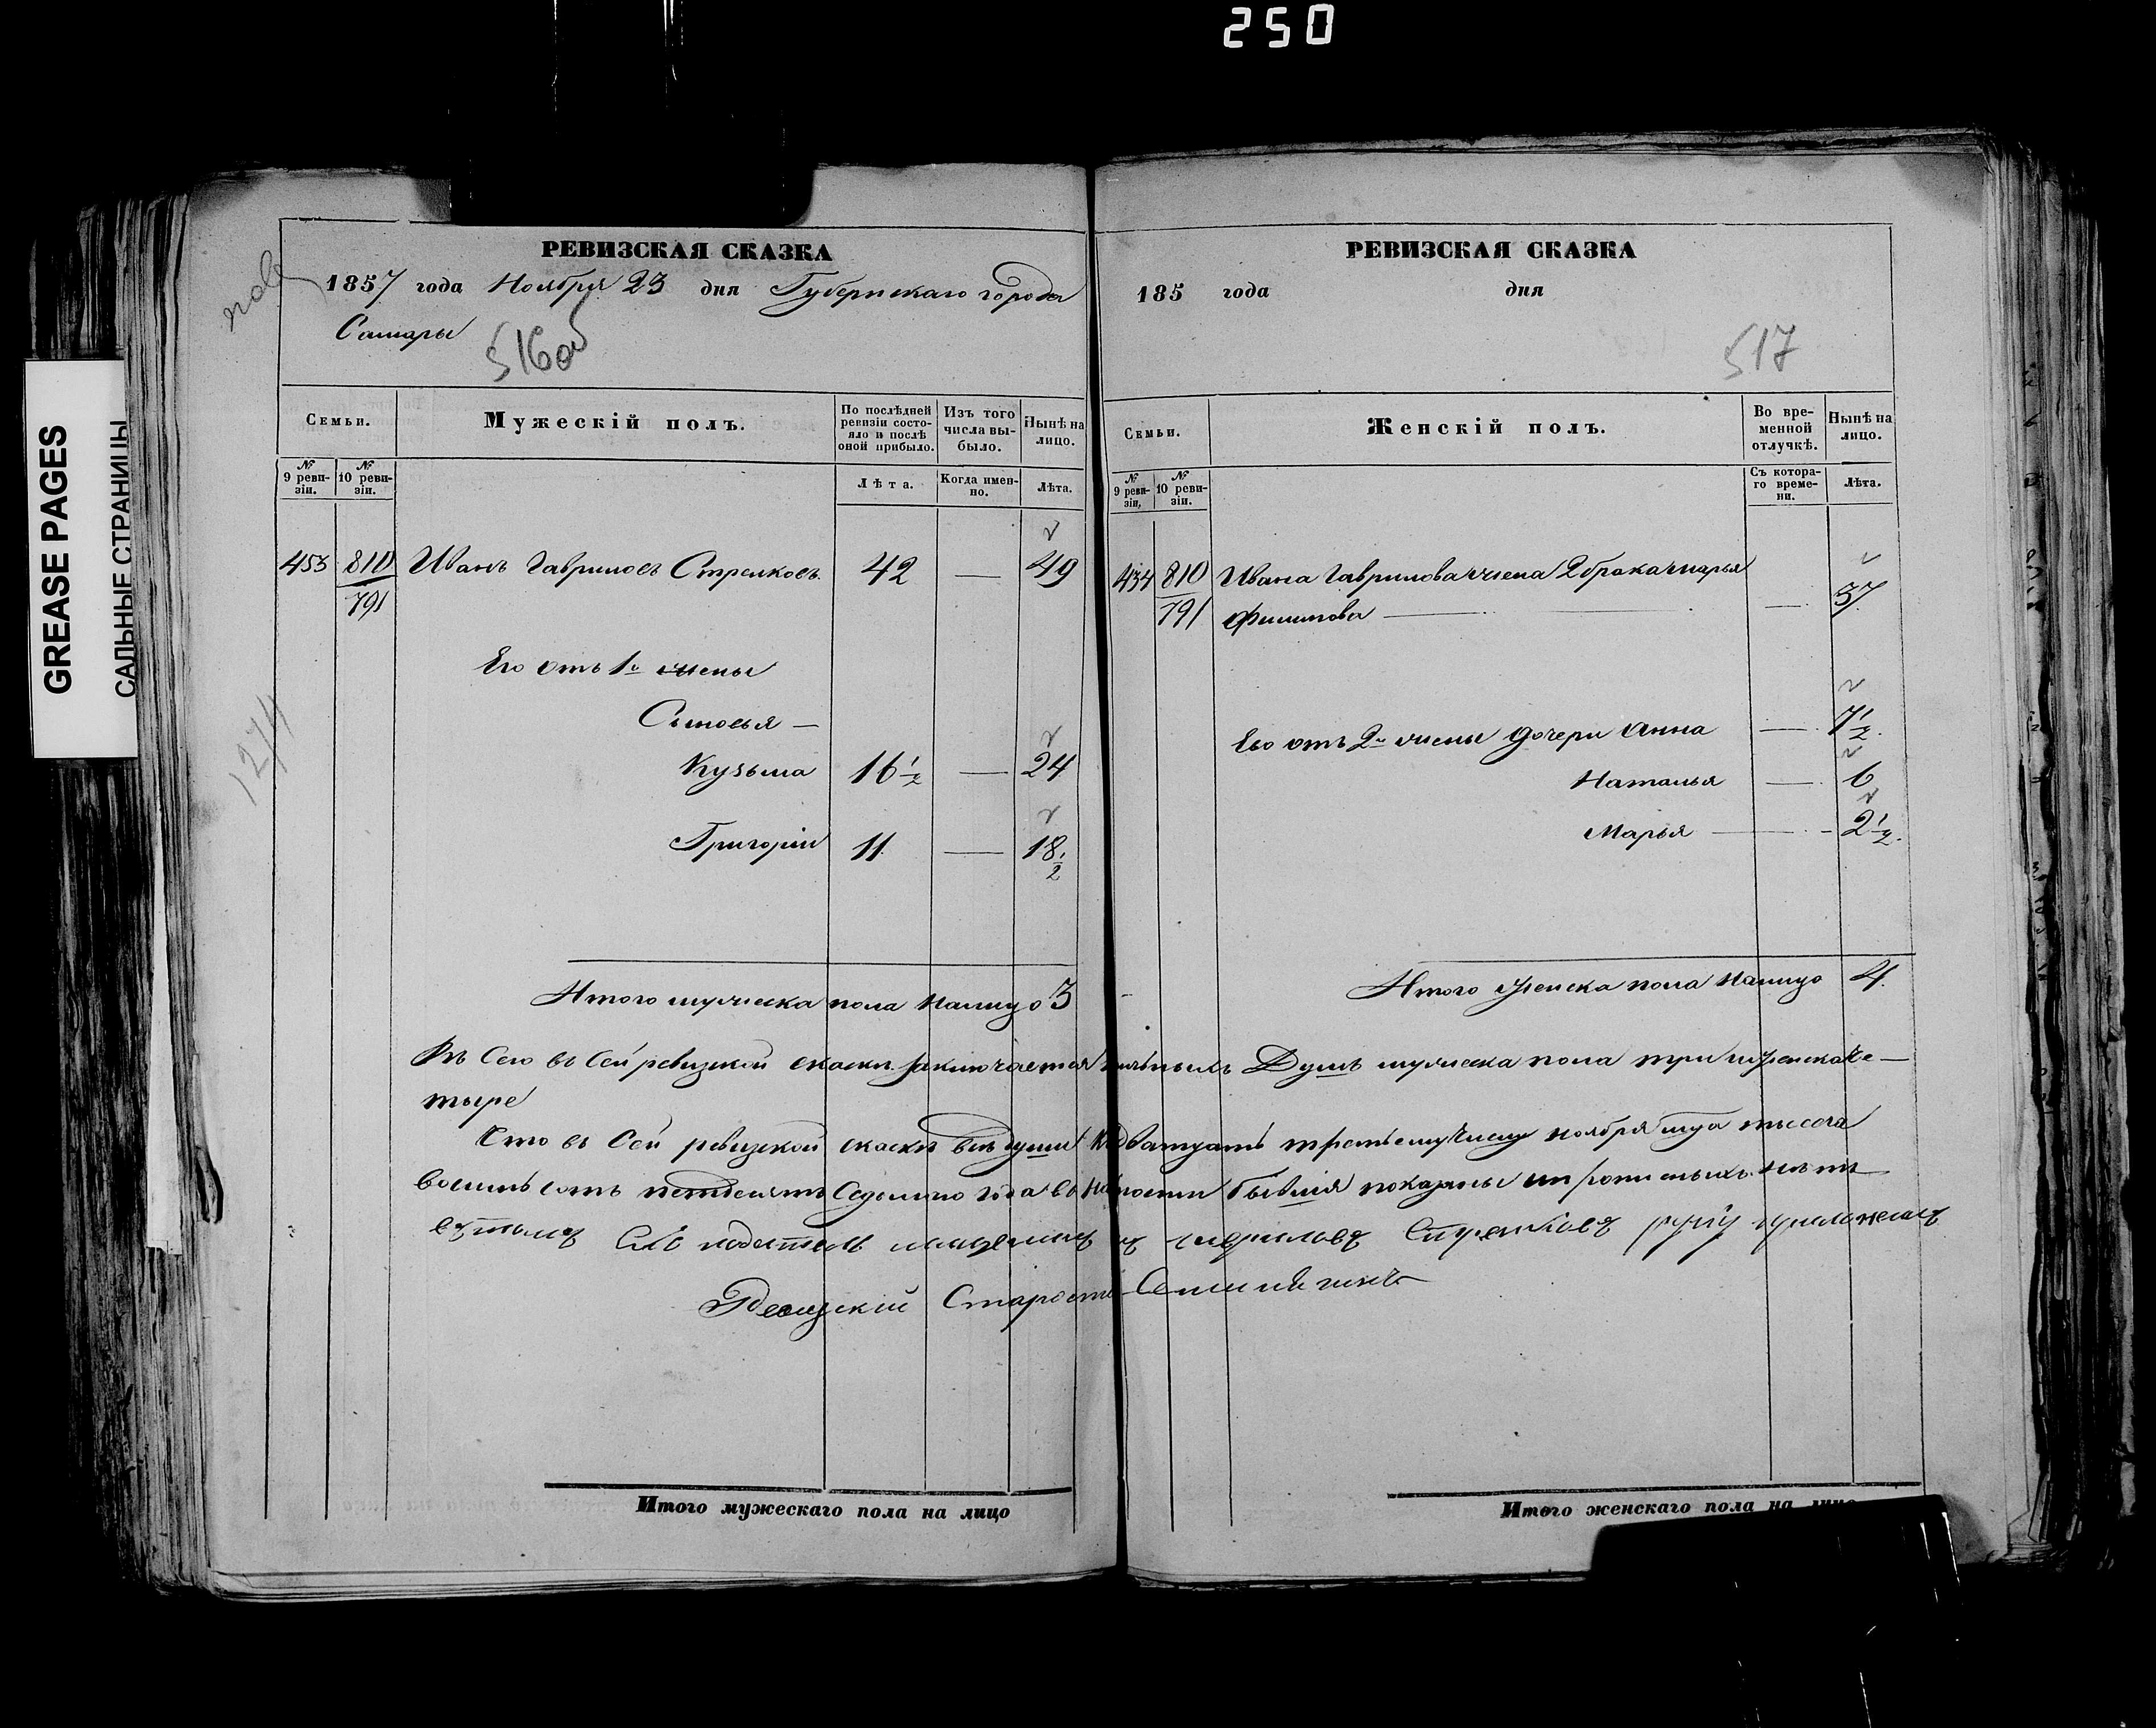 250
GREASE PAGES
САЛЬНЫЕ СТРАНИЦЫ
РЕВИЗСКАЯ СКАЗКА
1857 года Ноября 23 дня Губернскаго города
Самары
516об
1274
Семьи.
Мужескій полъ.
По послѣдней ревизіи состояло и послѣ оной прибыло.
Изъ того числа выбыло.
Нынѣ на лицо.
№ 9 ревизіи.
№ 10 ревизіи.
Лѣта.
Когда именно.
Лѣта.
453 810 Иванъ Гавриловъ Стрелковъ 42 — 49
791
Его отъ 1й жены
Сыновья —
Кузьма 16 1/2 — 24
Григорій 11 — 18 1/2
Итого мужеска пола налицо 3
РЕВИЗСКАЯ СКАЗКА
185 года дня
517
Семьи.
Женскій полъ.
Во временной отлучкѣ.
Нынѣ на лицо.
№ 9 ревизіи.
№ 10 ревизіи.
Съ котораго времени.
Лѣта.
434 810 Ивана Гаврилова жена 2 брака Марья
791 Филипова — 37
Его отъ 2й жены дочери Анна — 7 1/2
Наталья — 6
Марья — 2 1/2
Итого женска пола налицо 4
сей ревизской скаски заключается Душъ мужеска пола три женска че-
тыре
Что въ сей ревизской скаски все души третьему числу ноября тысеча
восимьсотъ петдесятъ седьмаго года бывшия показаны
Стрелковъ руку приложилъ
Ревизскій Староста
Итого мужескаго пола на лицо
Итого женскаго пола на лицо